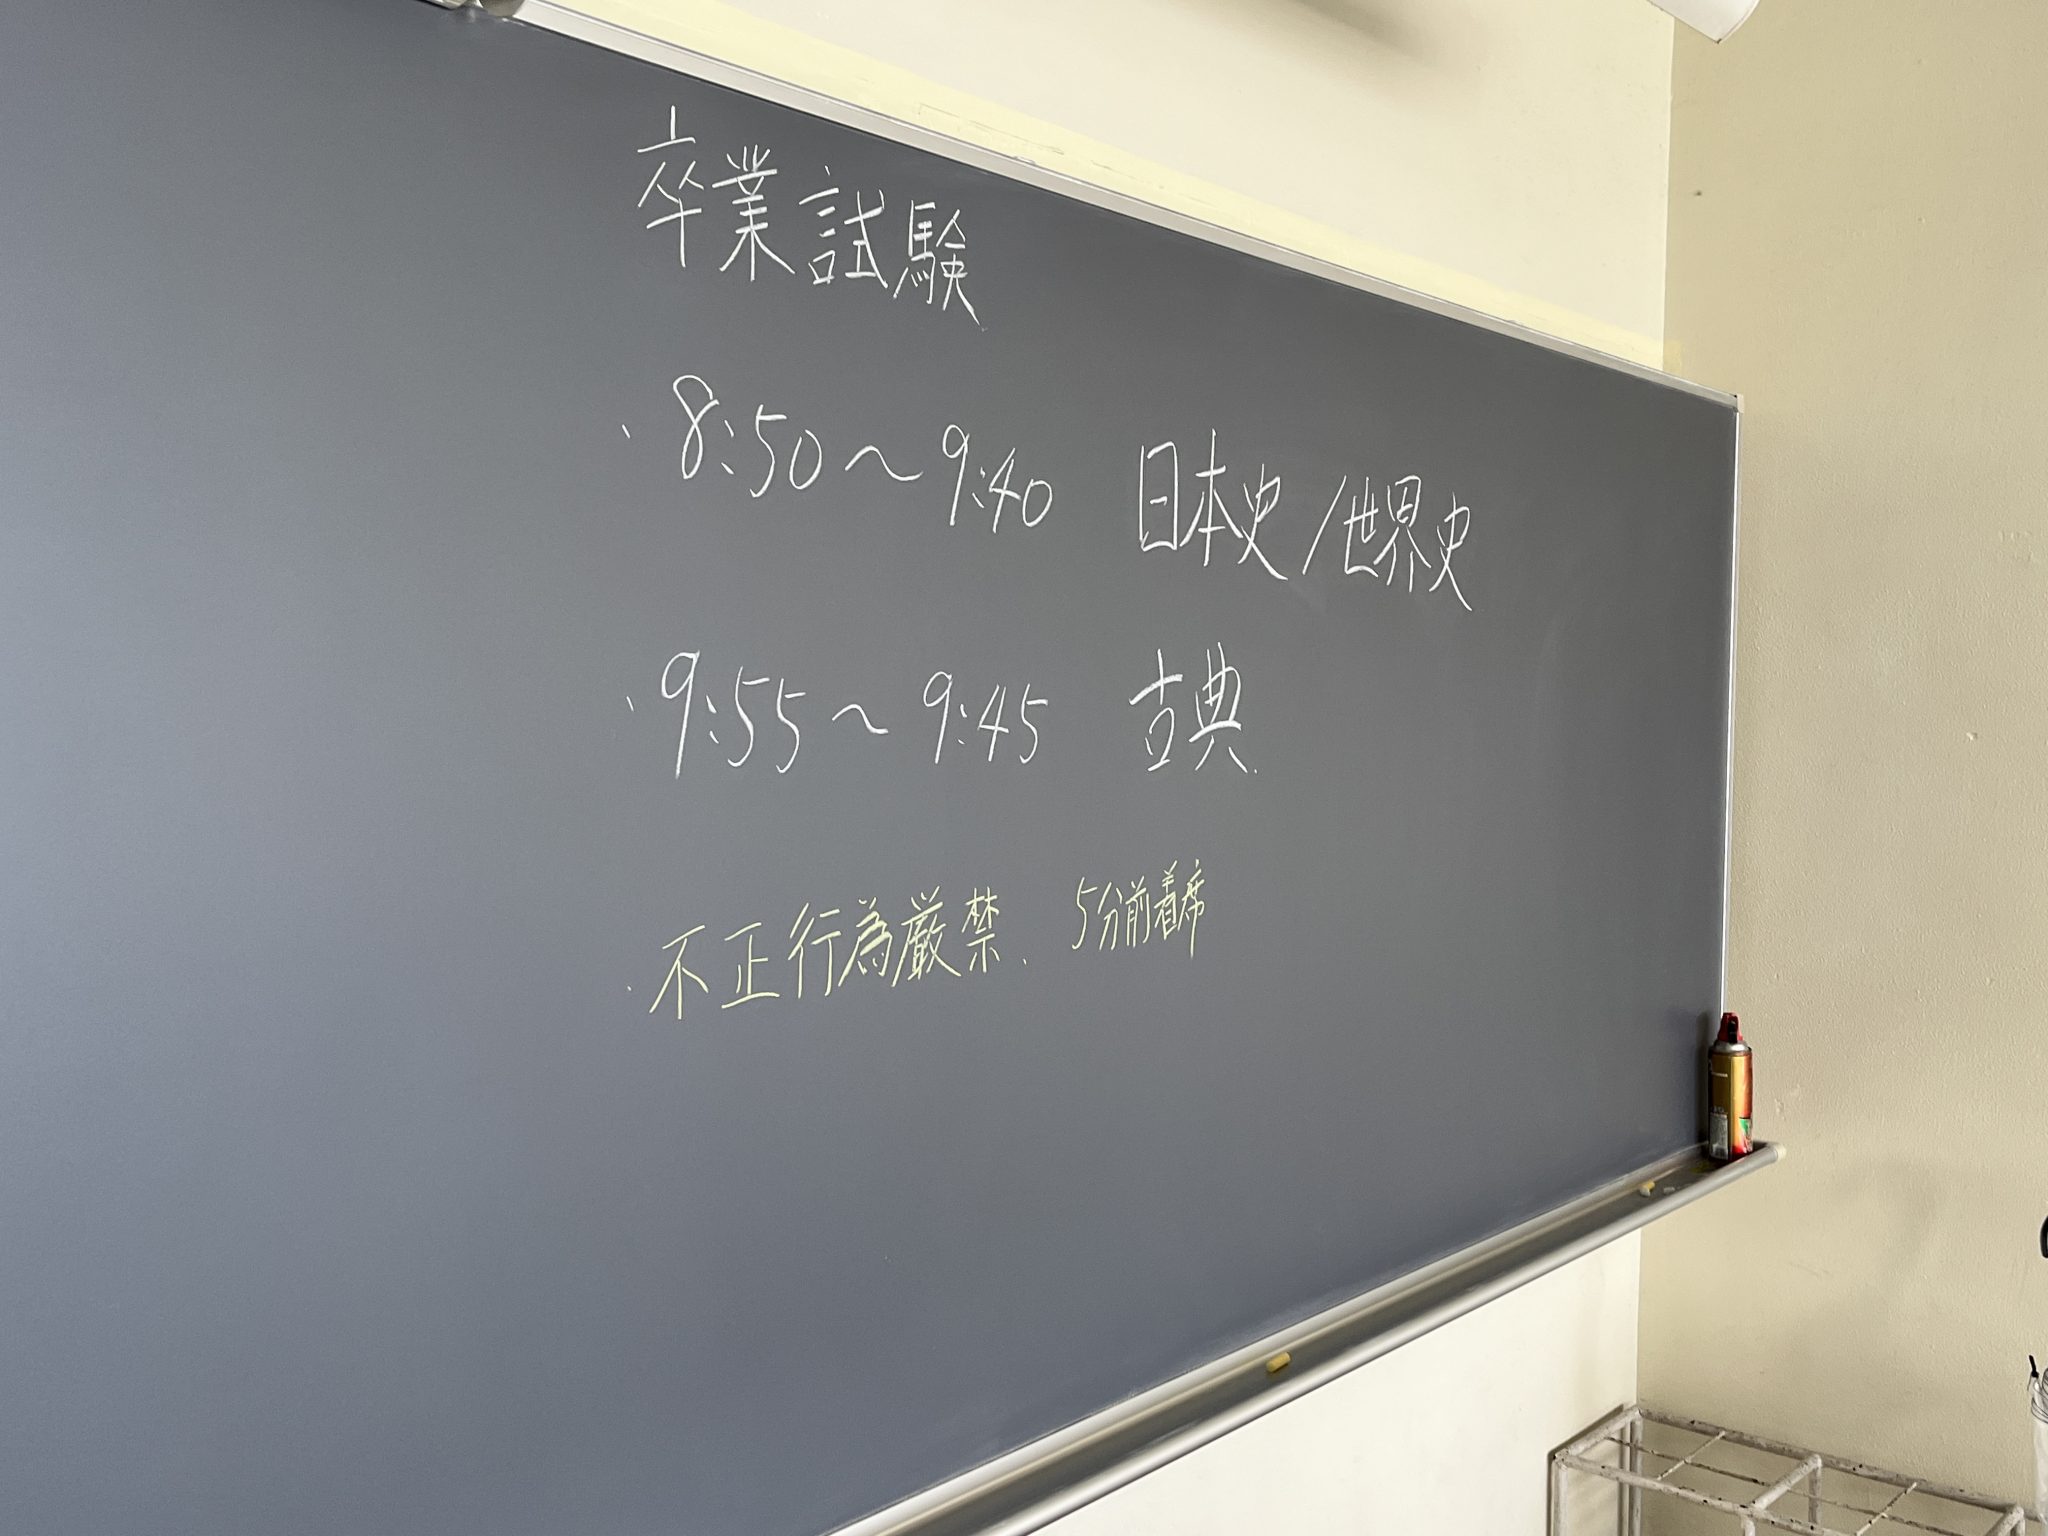 卒業試験
・8:50～9:40 日本史/世界史
・9:55～9:45 古典
・不正行為厳禁、5分前着席